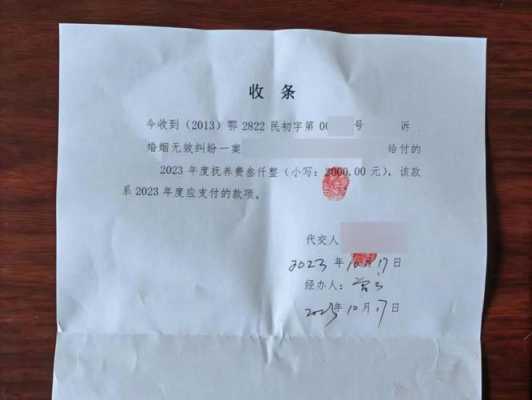 收条
今收到(2013)鄂 2822 民初字第 0 号 诉
婚姻无效纠纷一案 给付的
2023 年度抚养费叁仟整(小写:3000.00 元),该款
系 2023 年度应支付的款项。
代交人
2023 年 10月 17 日
经办人:
2023年 10 月 17 日